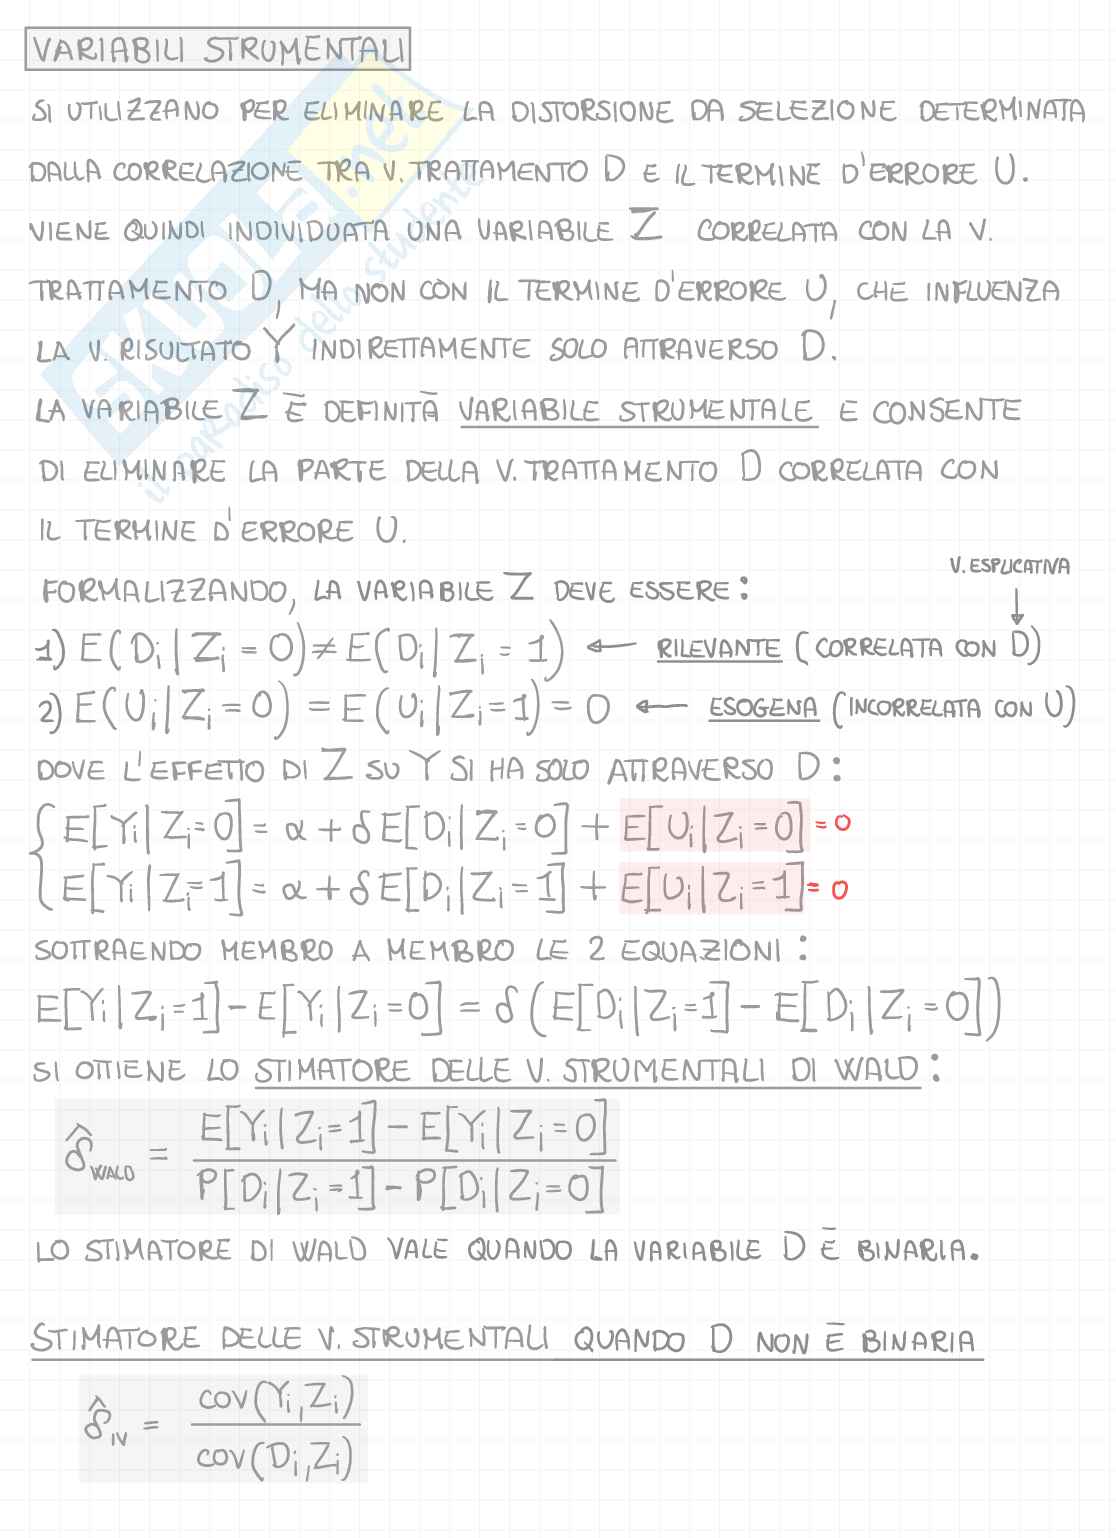 VARIABILI STRUMENTALI
SI UTILIZZANO PER ELIMINARE LA DISTORSIONE DA SELEZIONE DETERMINATA
DALLA CORRELAZIONE TRA V. TRATTAMENTO D E IL TERMINE D'ERRORE U.
VIENE QUINDI INDIVIDUATA UNA VARIABILE Z CORRELATA CON LA V.
TRATTAMENTO D, MA NON CON IL TERMINE D'ERRORE U, CHE INFLUENZA
LA V. RISULTATO Y INDIRETTAMENTE SOLO ATTRAVERSO D.
LA VARIABILE Z È DEFINITA VARIABILE STRUMENTALE E CONSENTE
DI ELIMINARE LA PARTE DELLA V. TRATTAMENTO D CORRELATA CON
IL TERMINE D'ERRORE U.
V. ESPLICATIVA
FORMALIZZANDO, LA VARIABILE Z DEVE ESSERE:
1) E(Di|Zi=0)≠E(Di|Zi=1) ← RILEVANTE (CORRELATA CON D)
2) E(Ui|Zi=0)=E(Ui|Zi=1)=0 ← ESOGENA (INCORRELATA CON U)
DOVE L'EFFETTO DI Z SU Y SI HA SOLO ATTRAVERSO D:
E[Yi|Zi=0]=α+δE[Di|Zi=0]+E[Ui|Zi=0]=0
E[Yi|Zi=1]=α+δE[Di|Zi=1]+E[Ui|Zi=1]=0
SOTTRAENDO MEMBRO A MEMBRO LE 2 EQUAZIONI:
E[Yi|Zi=1]-E[Yi|Zi=0]=δ(E[Di|Zi=1]-E[Di|Zi=0])
SI OTTIENE LO STIMATORE DELLE V. STRUMENTALI DI WALD:
E[Yi|Zi=1]-E[Yi|Zi=0]
δ̂WALD =
P[Di|Zi=1]-P[Di|Zi=0]
LO STIMATORE DI WALD VALE QUANDO LA VARIABILE D È BINARIA.
STIMATORE DELLE V. STRUMENTALI QUANDO D NON È BINARIA
cov(Yi,Zi)
δ̂IV =
cov(Di,Zi)
SKUOLA.net
il paradiso dello studente